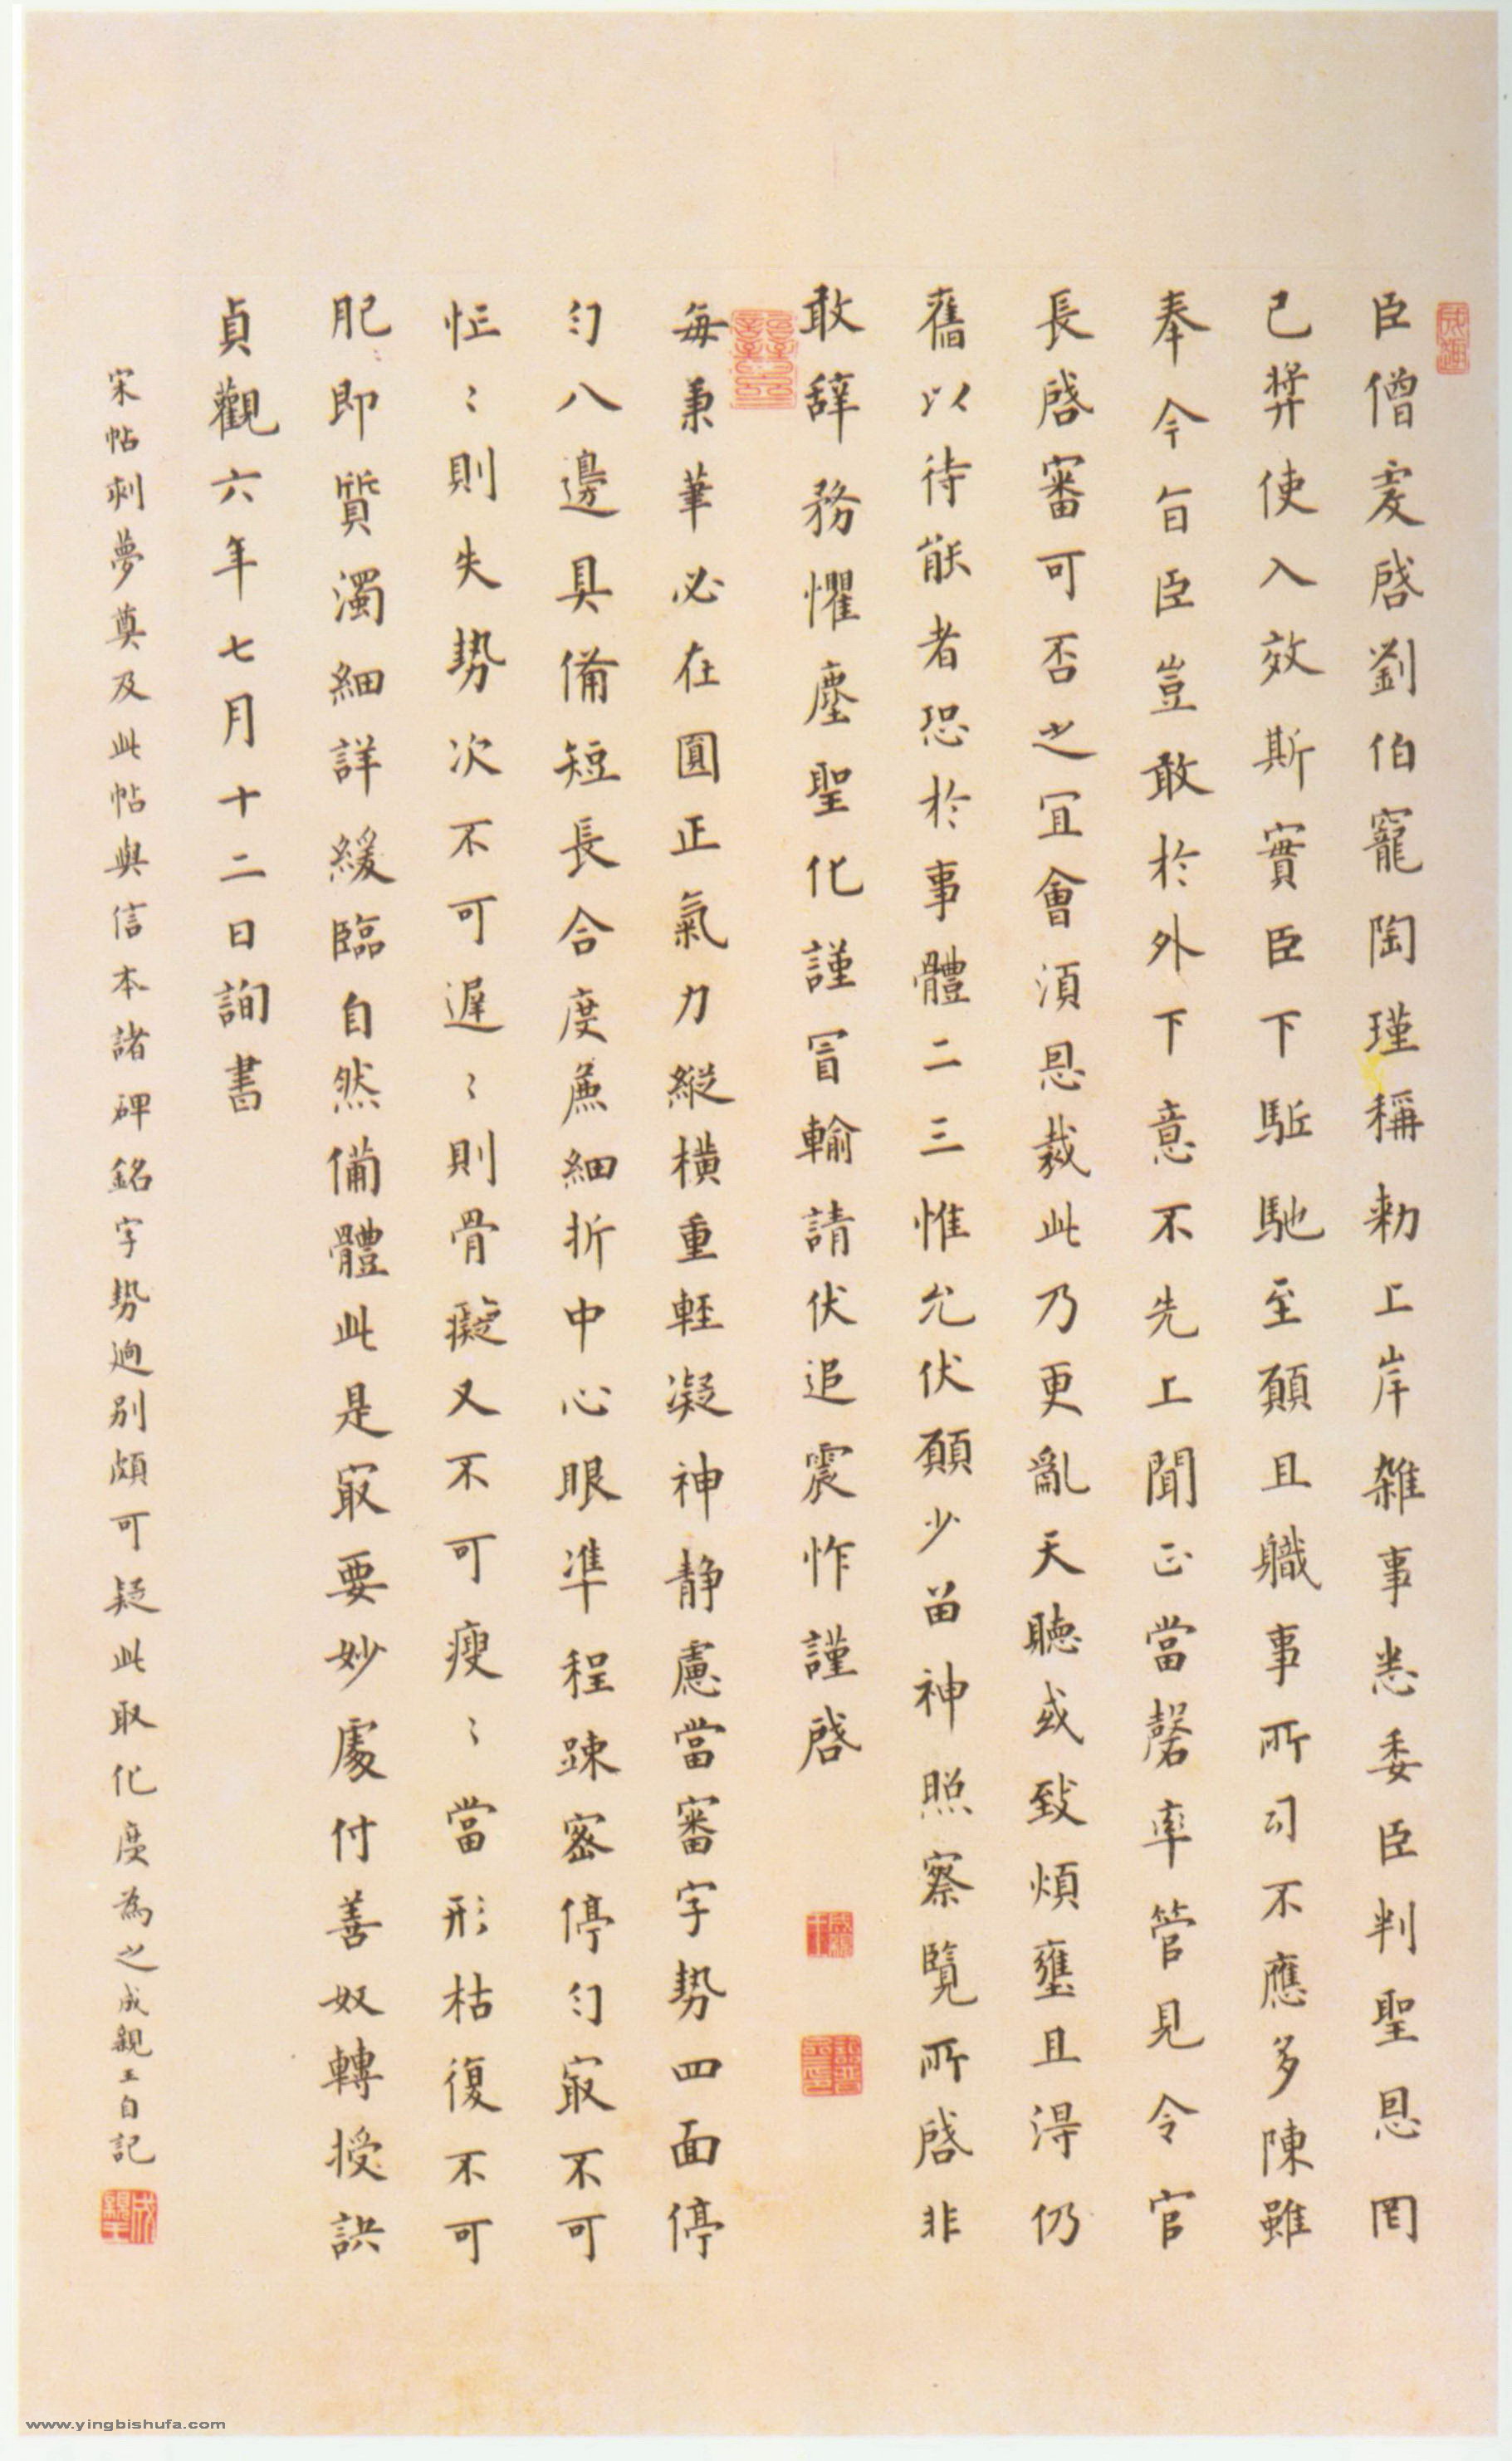 臣僧虔啓劉伯寵陶瑾稱勑上岸雜事悉委臣判聖恩罔
已弊使入效斯實臣下駈馳至願且職事所司不應多陳雖
奉今旨臣豈敢於外下意不先上聞正當罄率管見令官
長啓審可否之宜會湏恩裁此乃更亂天聽或致煩壅且淂仍
舊以待能者恐於事體二三惟允伏願少留神照察覽所啓非
敢辞務懼塵聖化謹冒輸請伏追震怍謹啓
每秉筆必在圓正氣力縱橫重輕凝神静慮當審字勢四面停
匀八邊具備短長合度麄細折中心眼準程踈密停匀冣不可
忙〻則失勢次不可遲〻則骨癡又不可瘦〻當形枯復不可
肥〻即質濁細詳緩臨自然備體此是冣要妙處付善奴轉授訣
貞觀六年七月十二日詢書
宋帖刺夢奠及此帖與信本諸碑銘字勢逈別頗可疑此取化度為之成親王自記
www.yingbishufa.com